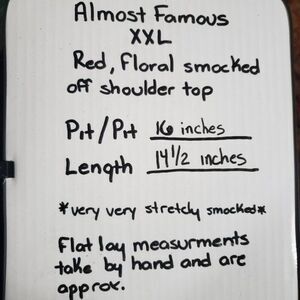 Almost Famous
XXL
Red, Floral smocked
off shoulder top
Pit/Pit 16 inches
Length 14 1/2 inches
*very very stretchy smocked*
Flat lay measurments
take by hand and are
approx.